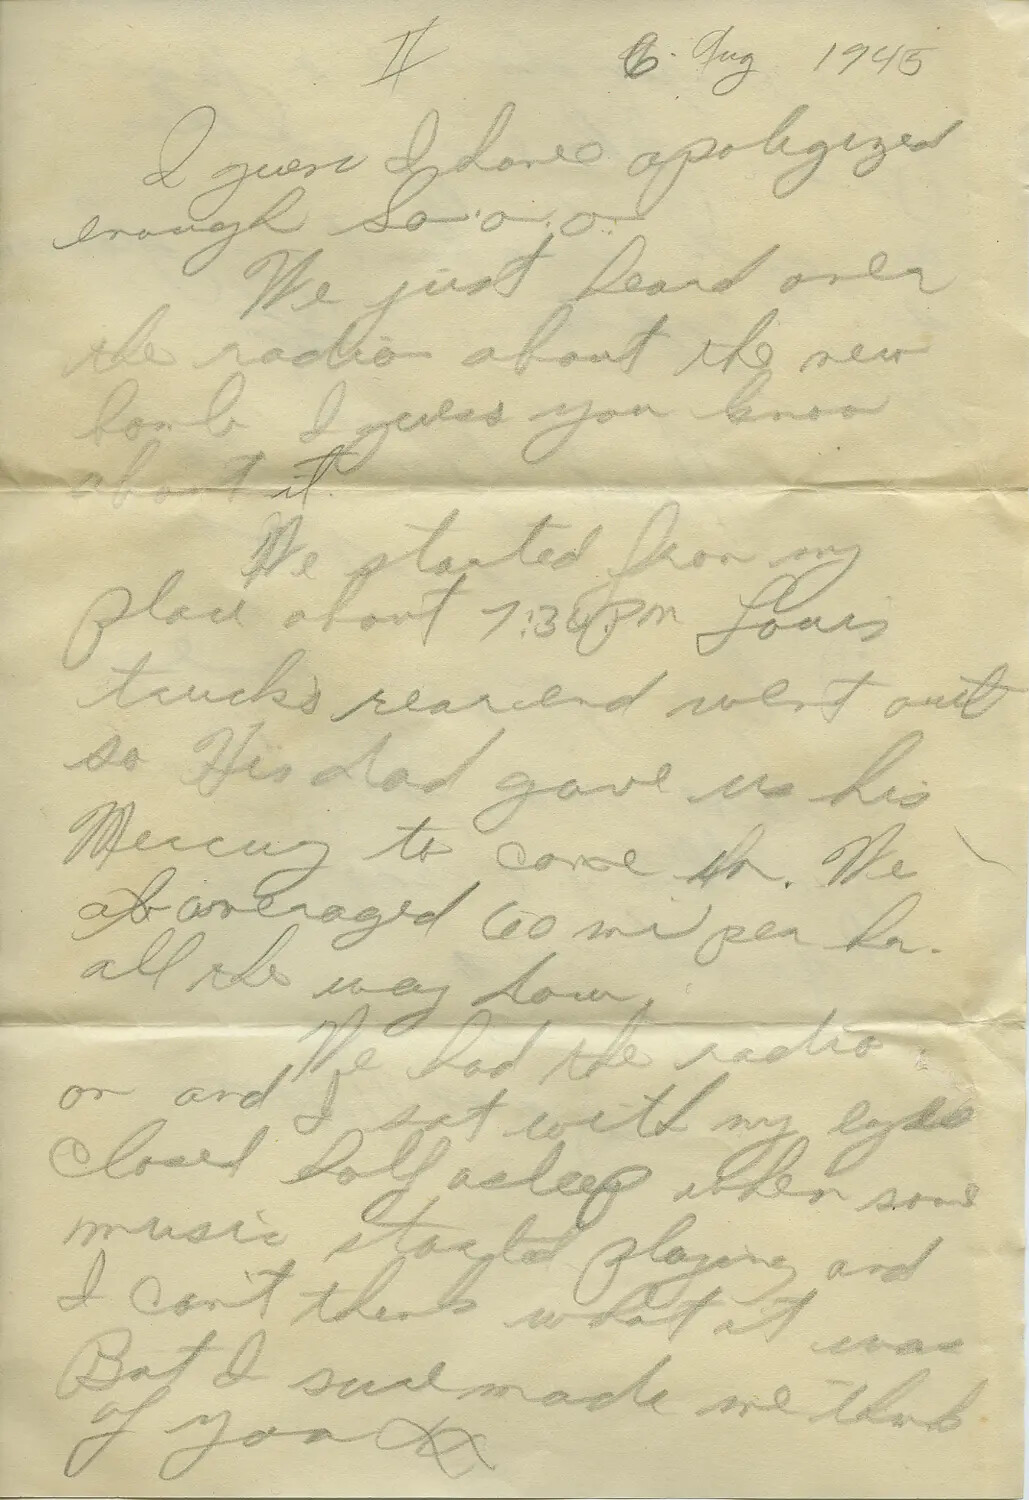 II 6 Aug 1945
I guess I have apoligized
enough so·o·o·
We just heard over
the radio about the new
bomb I guess you know
about it.
We started from my
place about 7:30 pm Louis
trucks rearend went out
so His dad gave us his
Mercury to come in. We
averaged 60 mi per hr.
all the way down.
We had the radio
on and I sat with my eyes
closed half asleep when some
music started playing and
I can't think what it was
But I sure made me think
of you XX